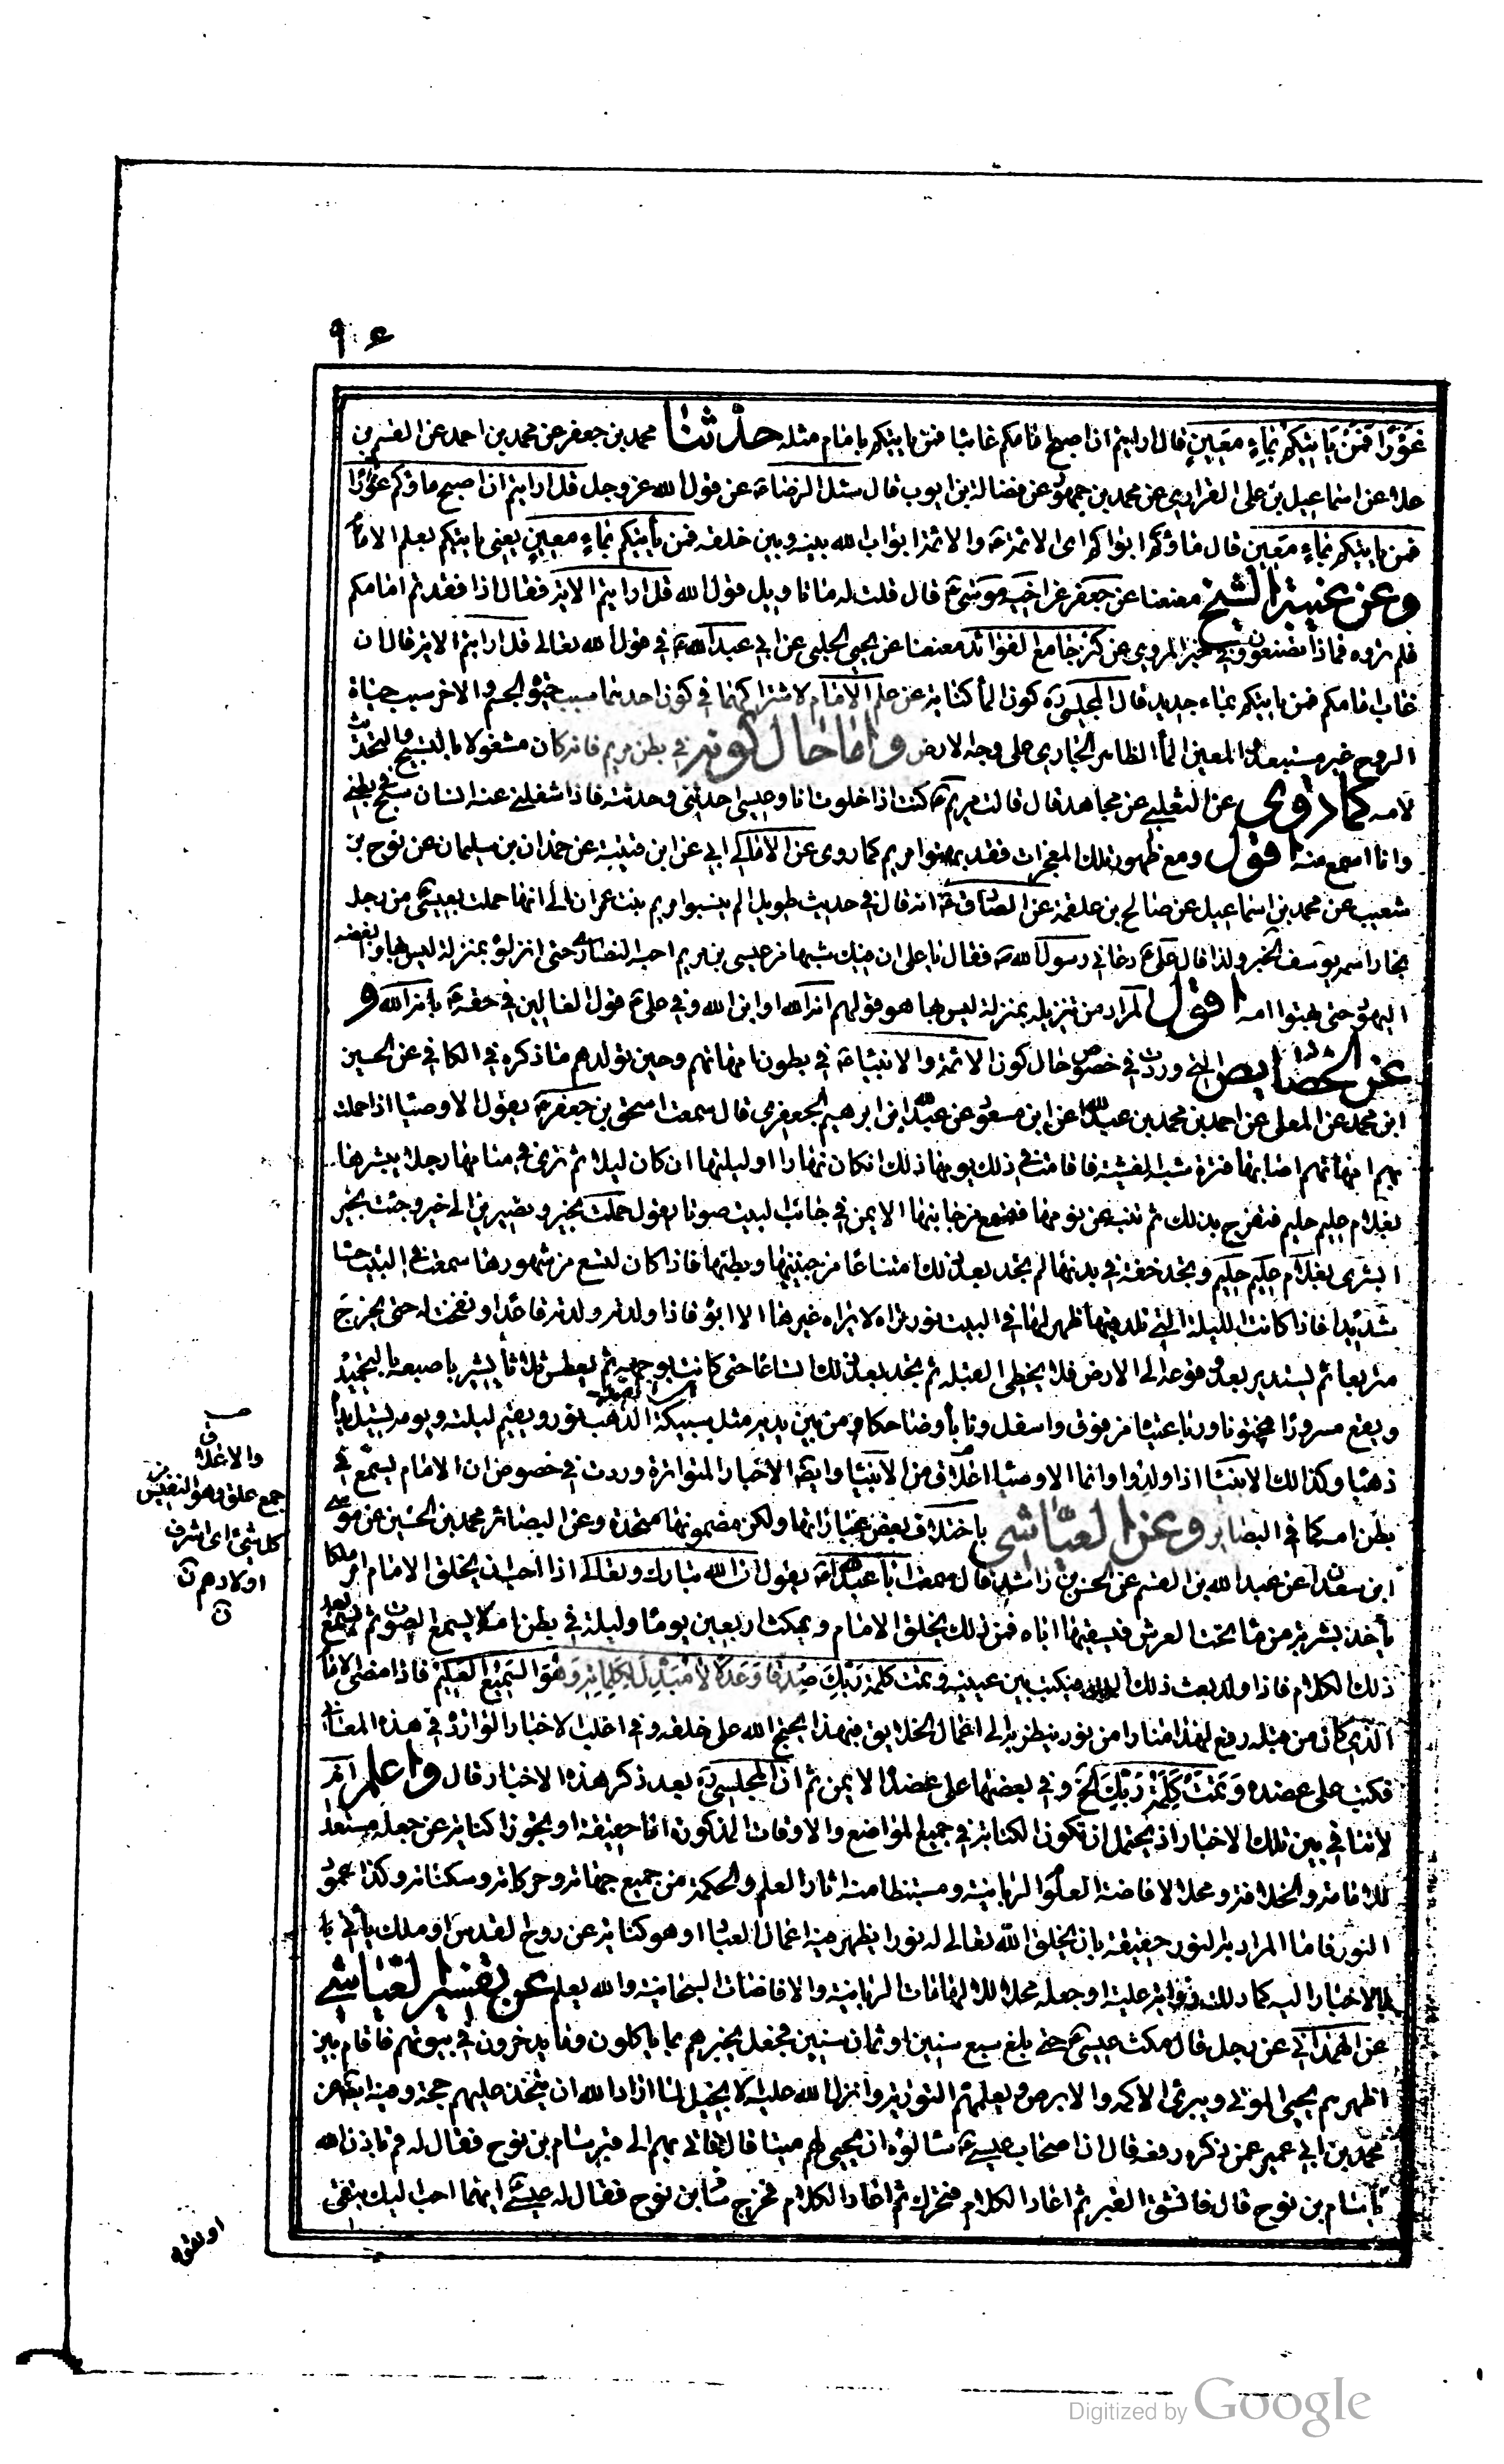 ٩٠٤
غَوْرًا فَمَنْ يَأْتِيكُمْ بِمَاءٍ مَعِينٍ قال ارايتم ان اصبح امامكم غائبا فمن ياتيكم بامام مثله حدّثنا محمد بن جعفر عن محمد بن احمد عن القسم بن
علا عن اسماعيل بن على الفزارى عن محمد بن جمهور عن فضالة بن ايوب قال سئل الرضا ع عن قول الله عز وجل قل ارايتم ان اصبح ماؤكم غورًا
فمن ياتيكم بماءٍ معين قال ماؤكم ابوابكم اى الائمة ع والائمة ابواب الله بينه وبين خلقه فمن يأتيكم بماءٍ معينٍ يعنى ياتيكم بعلم الامام
وعن غيبة الشيخ معنعنا عن جعفر عن اخيه موسى ع قال قلت له ما تاويل قول الله قل ارايتم الاية فقال اذا فقدتم امامكم
فلم تروه فماذا تصنعون وفي خبر المروى عن كنز جامع الفوائد معنعنا عن يحيى الحلبى عن ابى عبد الله ع فى قول الله تعالى قل ارايتم الاية قال ان
غاب امامكم فمن ياتيكم بماء جديد قال المجلسى ره كون الماء كناية عن علم الامام لاشتراكهما فى كون احدهما سبب حيوة الجسم والاخر سبب حياة
الروح غير مستبعد والمعين الماء الظاهر الجارى على وجه الارض واما حال كونه فى بطن مريم فانه كان مشغولا بالتسبيح والتحدث
لامه كما روى عن الثعلبى عن مجاهد قال قالت مريم ع كنت اذا خلوت انا وعيسى حدثنى وحدثته فاذا شغلنى عنه انسان سبّح فى بطنى
وانا اسمع منه اقول ومع ظهور تلك المعجزات فقد بهتوا مريم كما روى عن الامالى ابى عن ابن قتيبة عن حمدان بن سليمان عن نوح بن
شعيب عن محمد بن اسماعيل عن صالح بن علقمة عن الصادق ع انه قال فى حديث طويل الم ينسبوا مريم بنت عمران الى انها حملت بعيسى من رجل
نجار اسمه يوسف الخبر ولذا قال على ع دعانى رسول الله ص فقال يا على ان فيك شبها من عيسى بن مريم احبه النصارى حتى انزلوه بمنزلة ليس بها وابغضه
اليهود حتى بهتوا امه اقول المراد من تنزيله بمنزلة ليس بها هو قولهم انه الله او ابن الله وفى على ع قول الغالين فى حقه ع بانه الله و
عن الخصايص التى وردت فى خصوص حال كون الائمة والانبياء ع فى بطون امهاتهم وحين تولدهم ما ذكره فى الكافى عن الحسين
ابن محمد عن المعلى عن احمد بن محمد بن عبد الله عن ابن مسعود عن عبد الله ابن ابرهيم الجعفرى قال سمعت اسحق بن جعفر ع يقول الاوصيا اذا حملت
بهم امهاتهم اصابها فترة شبه الغشية فاقامت فى ذلك يومها ذلك ان كان نهارا او ليلتها ان كان ليلا ثم ترى فى منامها رجلا يبشرها
بغلام عليم حليم فتفرح بذلك ثم تنتبه من نومها فتسمع من جانبها الايمن فى جانب البيت صوتا يقول حملت بخير وتصيرين الى خير وجئت بخير
ابشرى بغلام حليم عليم وتجد خفة فى بدنها ثم لم تجد بعد ذلك امتناعا من جنبيها وبطنها فاذا كان لتسع من شهورها سمعت فى البيت حسا
شديدا فاذا كانت الليلة التى تلد فيها ظهر لها فى البيت نور تراه لا يراه غيرها الا ابوه فاذا ولدته ولدته قاعدا وتفتحت له حتى يخرج
متربعا ثم يستدير بعد وقوعه الى الارض فلا يخطى القبلة ثم يعطس ثلاثا يشير باصبعه بالتحميد
ويقع مسرورا مختونا ورباعيتاه من فوق واسفل وناباه وضاحكاه ومن بين يديه مثل سبيكة الذهب نور ويقيم ليلته ويومه يسيل يداه
ذهبا وكذالك الانبياء اذا ولدوا وانما الاوصيا اعلاق من الانبيا وايضا الاخبار المتواترة وردت فى خصوص ان الامام يسمع فى
بطن امه كما فى البصاير وعن العيّاشى باختلاف بعض عباراتها ولكن مضمونها متحده وعن البصائر محمد بن الحسين عن موسى
ابن سعدان عن عبد الله بن القسم عن الحسن بن راشد قال سمعت ابا عبد الله ع يقول ان الله تبارك وتعالى اذا احب ان يخلق الامام امر ملكا
يأخذ بشربة من ماء تحت العرش فيسقيها اباه فمن ذلك يخلق الامام ويمكث اربعين يوما وليلة فى بطن امه لا يسمع الصوت ثم يسمع بعد
ذلك الكلام فاذا ولد بعث ذلك الملك فيكتب بين عينيه وتمت كلمة ربك صدقا وعدلا لا مبدل لكلماته وهو السميع العليم فاذا مضى الامام
الذى كان من قبله رفع لهذا منارا من نور ينظر به الى اعمال الخلايق فبهذا يحتج الله على خلقه وفى اغلب الاخبار الواردة فى هذا المعنى
فكتب على عضده وتمت كلمة ربك الخ وفى بعضها على عضده الايمن ثم ان المجلسى ره بعد ذكر هذه الاخبار قال واعلم انه
لا تنافى بين تلك الاخبار اذ يحتمل ان تكون الكتابة فى جميع المواضع والاوقات المذكورة اما حقيقة او تجوزا كناية عن جعله مستعدا
للامامة والخلافة ومحلا لافاضة العلوم الربانية ومستنبطا منه اثار العلم والحكمة من جميع جهاته وحركاته وسكناته وكذا عمود
النور فاما المراد به النور حقيقة بان يخلق الله تعالى له نورا يظهر فيه اعمال العباد او هو كناية عن روح القدس او ملك يأتى با
بالاخبار اليه كما دلت عليه او جعله محلا للالهامات الربانية والافاضات السبحانية والله يعلم عن تفسير العيّاشى
عن الهمدانى عن رجل قال مكث عيسى ع حتى بلغ سبع سنين او ثمان سنين فجعل يخبرهم بما ياكلون وما يدخرون فى بيوتهم فاقام بين
اظهرهم يحيى الموتى ويبرئ الاكمه والابرص ويعلمهم التورية وانزل الله عليه الانجيل لما اراد الله ان يتخذ عليهم حجة وفيه ايضا عن
محمد بن ابى عمير عمن ذكره رفعه قال ان اصحاب عيسى ع سالوه ان يحيى لهم ميتا قال فاتى بهم الى قبر سام بن نوح فقال له قم باذن الله
يا سام بن نوح قال فانشق القبر ثم اعاد الكلام فتحرك ثم اعاد الكلام فخرج سام بن نوح فقال له عيسى ايهما احب اليك تبقى
والاعلاق
جمع علق وهو النفيس من
كل شئ اى اشرف
اولادهم
او تعود
Digitized by Google